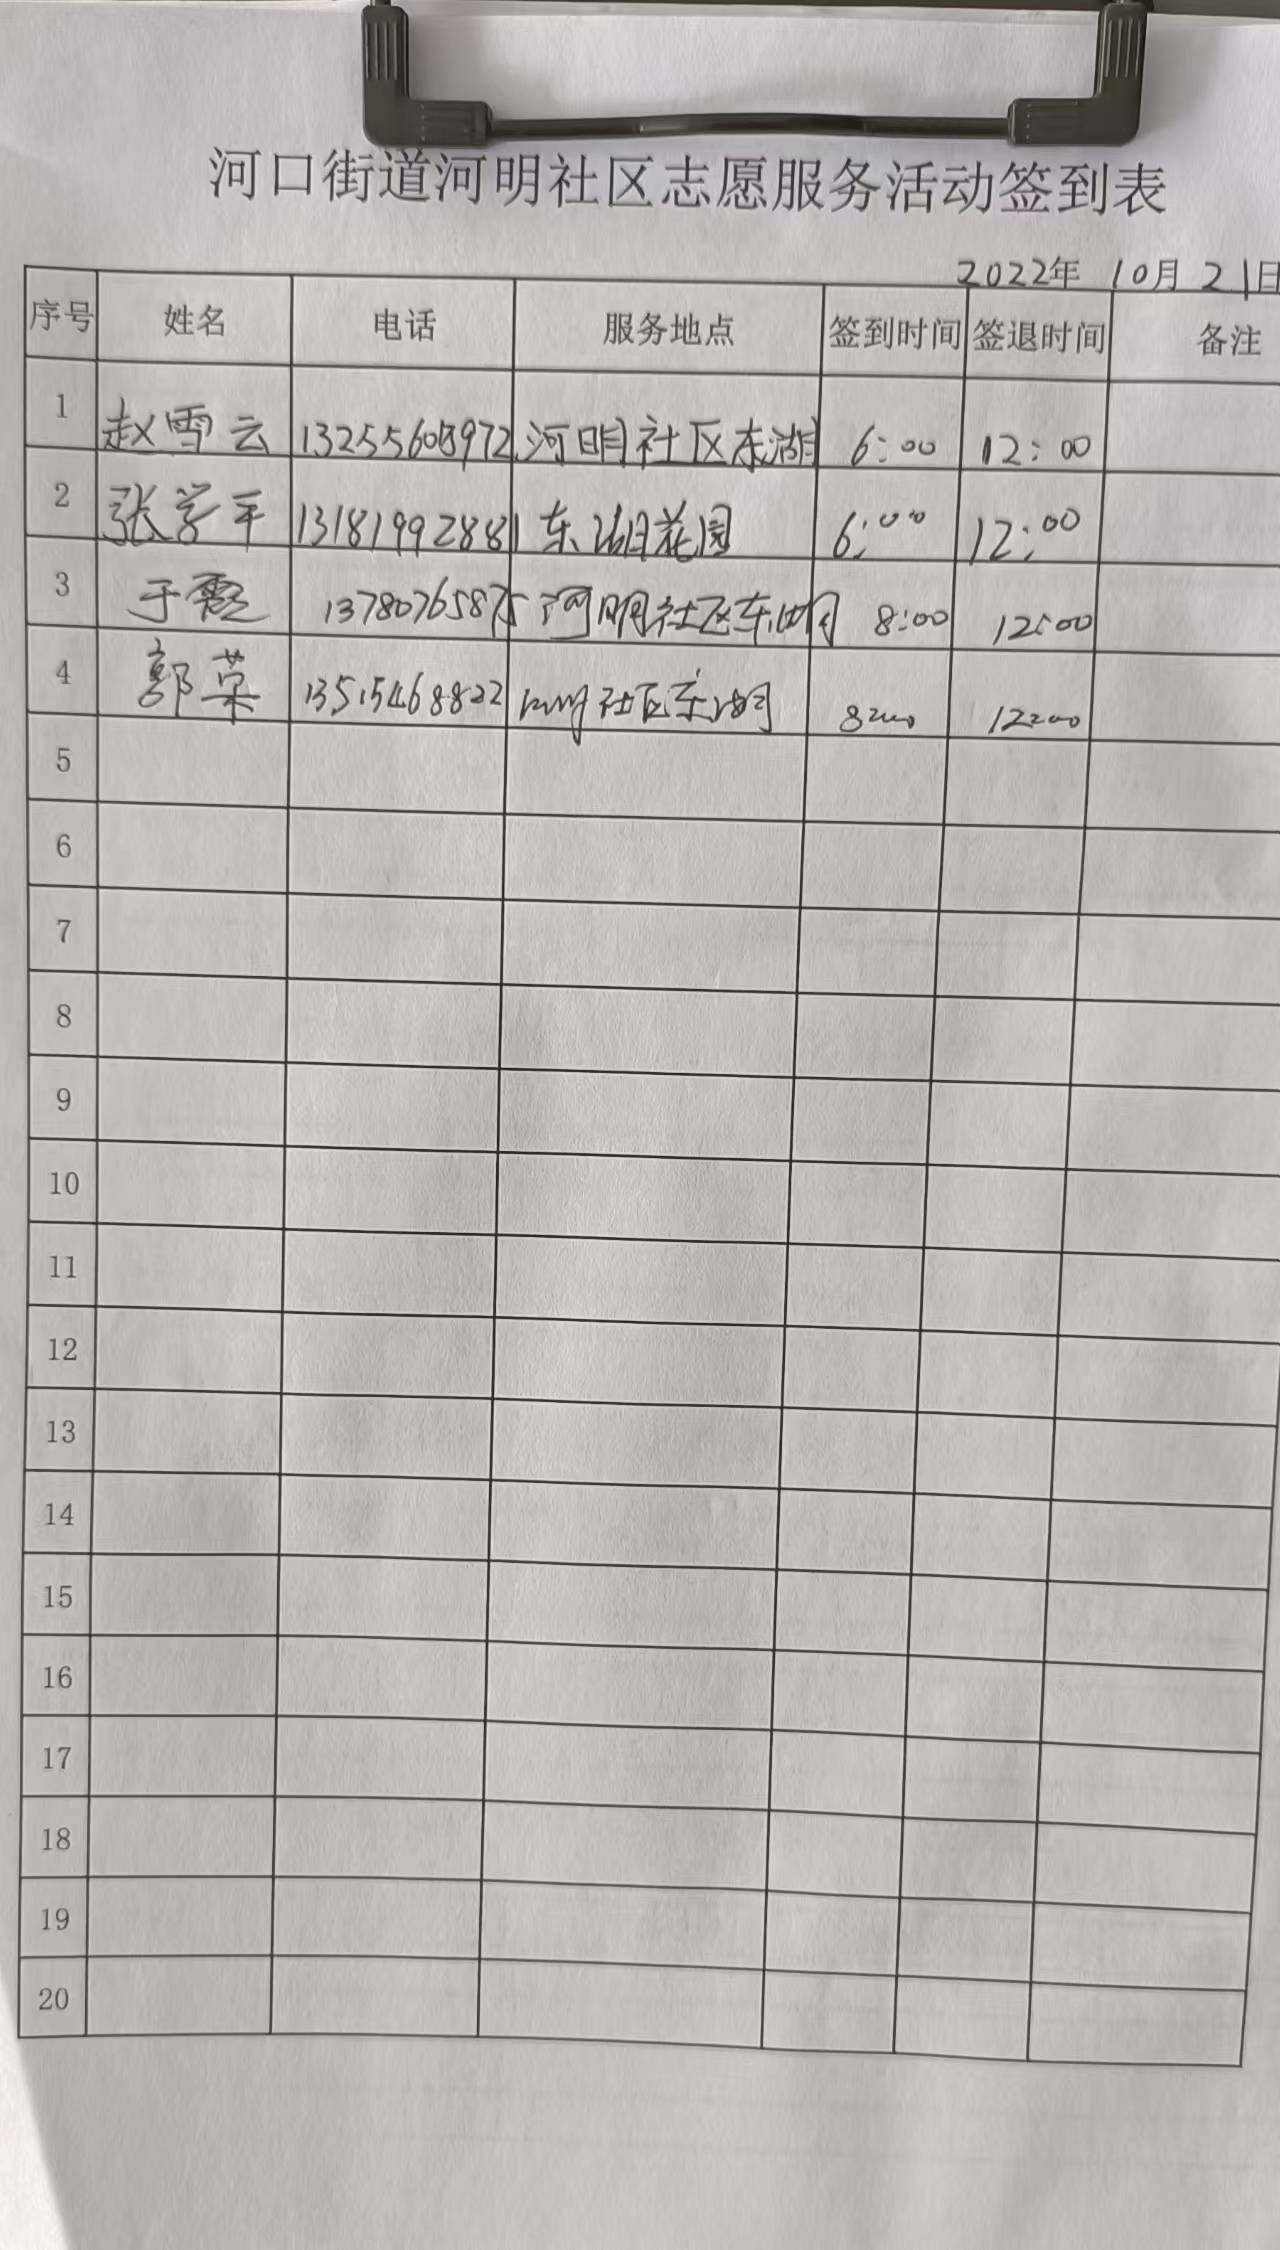 河口街道河明社区志愿服务活动签到表
2022年 10月 21日
序号 姓名 电话 服务地点 签到时间 签退时间 备注
1 赵雪云 13255605972 河明社区东湖 6:00 12:00
2 张学平 13181992881 东湖花园 6:00 12:00
3 于霞 13780765875 河明社区东湖 8:00 12:00
4 郭荣 13515468822 河明社区东湖 8:00 12:00
5
6
7
8
9
10
11
12
13
14
15
16
17
18
19
20